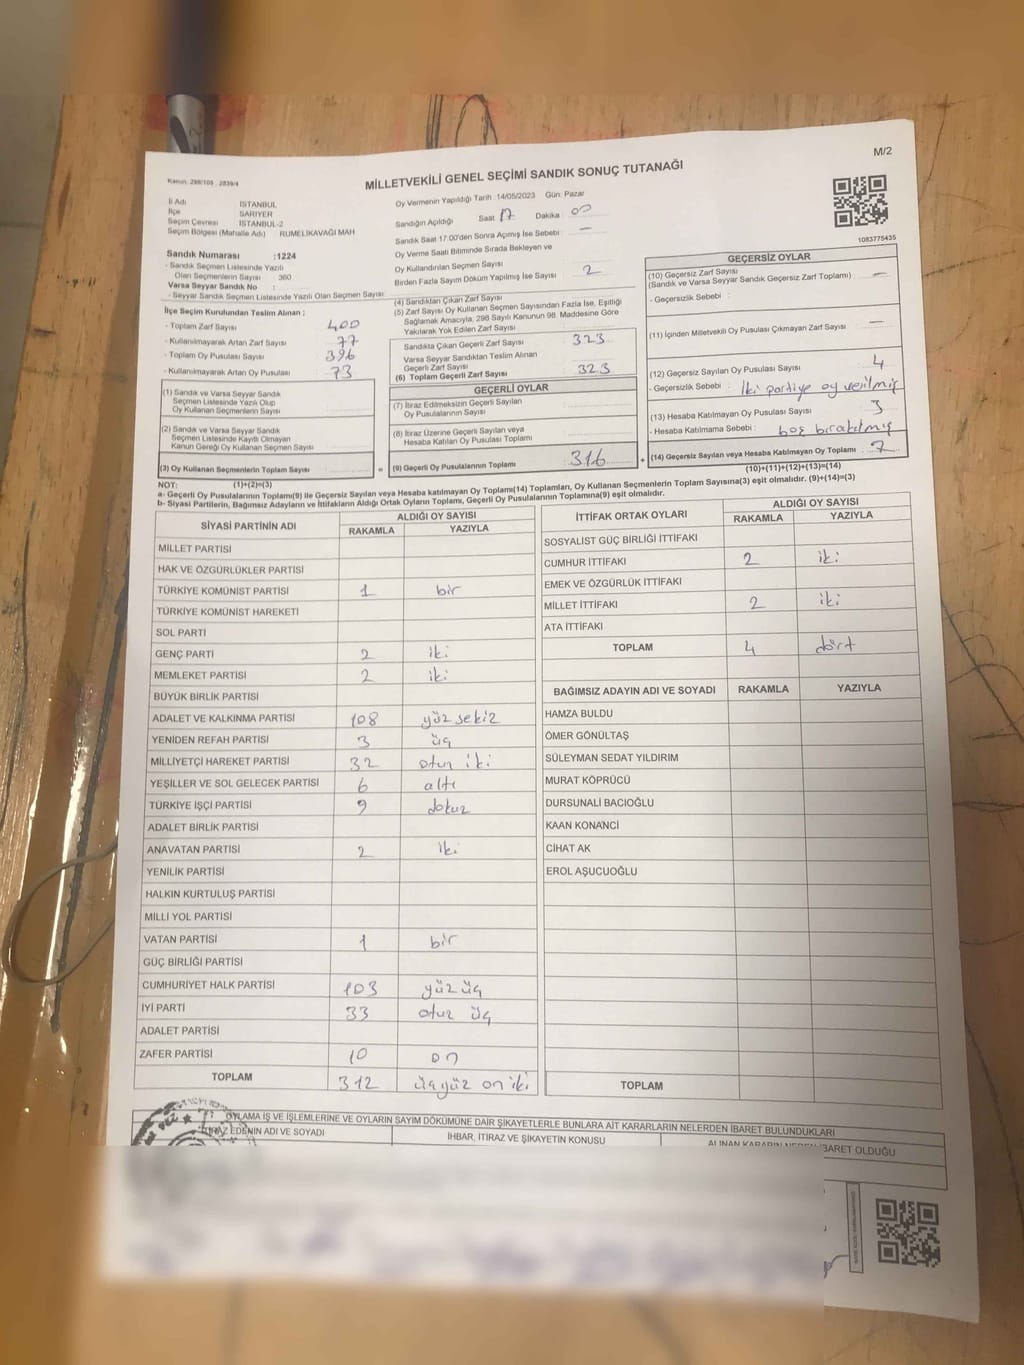 M/2
Kanun: 298/105 : 2839/4
MİLLETVEKİLİ GENEL SEÇİMİ SANDIK SONUÇ TUTANAĞI
İl Adı İSTANBUL
İlçe SARIYER
Seçim Çevresi İSTANBUL-2
Seçim Bölgesi (Mahalle Adı) : RUMELİKAVAĞI MAH
Sandık Numarası :1224
- Sandık Seçmen Listesinde Yazılı
Olan Seçmenlerin Sayısı : 360
Varsa Seyyar Sandık No :
- Seyyar Sandık Seçmen Listesinde Yazılı Olan Seçmen Sayısı
İlçe Seçim Kurulundan Teslim Alınan ;
- Toplam Zarf Sayısı 400
- Kullanılmayarak Artan Zarf Sayısı 77
- Toplam Oy Pusulası Sayısı 396
- Kullanılmayarak Artan Oy Pusulası 73
(1) Sandık ve Varsa Seyyar Sandık
Seçmen Listesinde Yazılı Olup
Oy Kullanan Seçmenlerin Sayısı
(2) Sandık ve Varsa Seyyar Sandık
Seçmen Listesinde Kayıtlı Olmayan
Kanun Gereği Oy Kullanan Seçmen Sayısı
(3) Oy Kullanan Seçmenlerin Toplam Sayısı =
Oy Vermenin Yapıldığı Tarih :14/05/2023 Gün: Pazar
Sandığın Açıldığı Saat 17 Dakika : 00
Sandık Saat 17.00'den Sonra Açımış İse Sebebi : —
Oy Verme Saati Bitiminde Sırada Bekleyen ve
Oy Kullandırılan Seçmen Sayısı
Birden Fazla Sayım Döküm Yapılmış İse Sayısı 2
(4) Sandıktan Çıkan Zarf Sayısı
(5) Zarf Sayısı Oy Kullanan Seçmen Sayısından Fazla İse, Eşitliği
Sağlamak Amacıyla, 298 Sayılı Kanunun 98. Maddesine Göre
Yakılarak Yok Edilen Zarf Sayısı
Sandıkta Çıkan Geçerli Zarf Sayısı 323
Varsa Seyyar Sandıktan Teslim Alınan
Geçerli Zarf Sayısı
(6) Toplam Geçerli Zarf Sayısı 323
GEÇERLİ OYLAR
(7) İtiraz Edilmeksizin Geçerli Sayılan
Oy Pusulalarının Sayısı
(8) İtiraz Üzerine Geçerli Sayılan veya
Hesaba Katılan Oy Pusulası Toplamı
(9) Geçerli Oy Pusulalarının Toplamı 316 +
1083775435
GEÇERSİZ OYLAR
(10) Geçersiz Zarf Sayısı
(Sandık ve Varsa Seyyar Sandık Geçersiz Zarf Toplamı) : —
- Geçersizlik Sebebi :
(11) İçinden Milletvekili Oy Pusulası Çıkmayan Zarf Sayısı —
(12) Geçersiz Sayılan Oy Pusulası Sayısı 4
- Geçersizlik Sebebi : İki partiye oy verilmiş
(13) Hesaba Katılmayan Oy Pusulası Sayısı 3
- Hesaba Katılmama Sebebi : boş bırakılmış
(14) Geçersiz Sayılan veya Hesaba Katılmayan Oy Toplamı : 7
NOT: (1)+(2)=(3)
(10)+(11)+(12)+(13)=(14)
a- Geçerli Oy Pusulalarının Toplamı(9) ile Geçersiz Sayılan veya Hesaba katılmayan Oy Toplamı(14) Toplamları, Oy Kullanan Seçmenlerin Toplam Sayısına(3) eşit olmalıdır. (9)+(14)=(3)
b- Siyasi Partilerin, Bağımsız Adayların ve İttifakların Aldığı Ortak Oyların Toplamı, Geçerli Oy Pusulalarının Toplamına(9) eşit olmalıdır.
SİYASİ PARTİNİN ADI ALDIĞI OY SAYISI
RAKAMLA YAZIYLA
MİLLET PARTİSİ
HAK VE ÖZGÜRLÜKLER PARTİSİ
TÜRKİYE KOMÜNİST PARTİSİ 1 bir
TÜRKİYE KOMÜNİST HAREKETİ
SOL PARTİ
GENÇ PARTİ 2 iki
MEMLEKET PARTİSİ 2 iki
BÜYÜK BİRLİK PARTİSİ
ADALET VE KALKINMA PARTİSİ 108 yüz sekiz
YENİDEN REFAH PARTİSİ 3 üç
MİLLİYETÇİ HAREKET PARTİSİ 32 otuz iki
YEŞİLLER VE SOL GELECEK PARTİSİ 6 altı
TÜRKİYE İŞÇİ PARTİSİ 9 dokuz
ADALET BİRLİK PARTİSİ
ANAVATAN PARTİSİ 2 iki
YENİLİK PARTİSİ
HALKIN KURTULUŞ PARTİSİ
MİLLİ YOL PARTİSİ
VATAN PARTİSİ 1 bir
GÜÇ BİRLİĞİ PARTİSİ
CUMHURİYET HALK PARTİSİ 103 yüz üç
İYİ PARTİ 33 otuz üç
ADALET PARTİSİ
ZAFER PARTİSİ 10 on
TOPLAM 312 üçyüz on iki
İTTİFAK ORTAK OYLARI ALDIĞI OY SAYISI
RAKAMLA YAZIYLA
SOSYALİST GÜÇ BİRLİĞİ İTTİFAKI
CUMHUR İTTİFAKI 2 iki
EMEK VE ÖZGÜRLÜK İTTİFAKI
MİLLET İTTİFAKI 2 iki
ATA İTTİFAKI
TOPLAM 4 dört
BAĞIMSIZ ADAYIN ADI VE SOYADI RAKAMLA YAZIYLA
HAMZA BULDU
ÖMER GÖNÜLTAŞ
SÜLEYMAN SEDAT YILDIRIM
MURAT KÖPRÜCÜ
DURSUNALİ BACIOĞLU
KAAN KONANCİ
CİHAT AK
EROL AŞUCUOĞLU
TOPLAM
OYLAMA İŞ VE İŞLEMLERİNE VE OYLARIN SAYIM DÖKÜMÜNE DAİR ŞİKAYETLERLE BUNLARA AİT KARARLARIN NELERDEN İBARET BULUNDUKLARI
İTİRAZ EDENİN ADI VE SOYADI İHBAR, İTİRAZ VE ŞİKAYETİN KONUSU ALINAN KARARIN NEDEN İBARET OLDUĞU